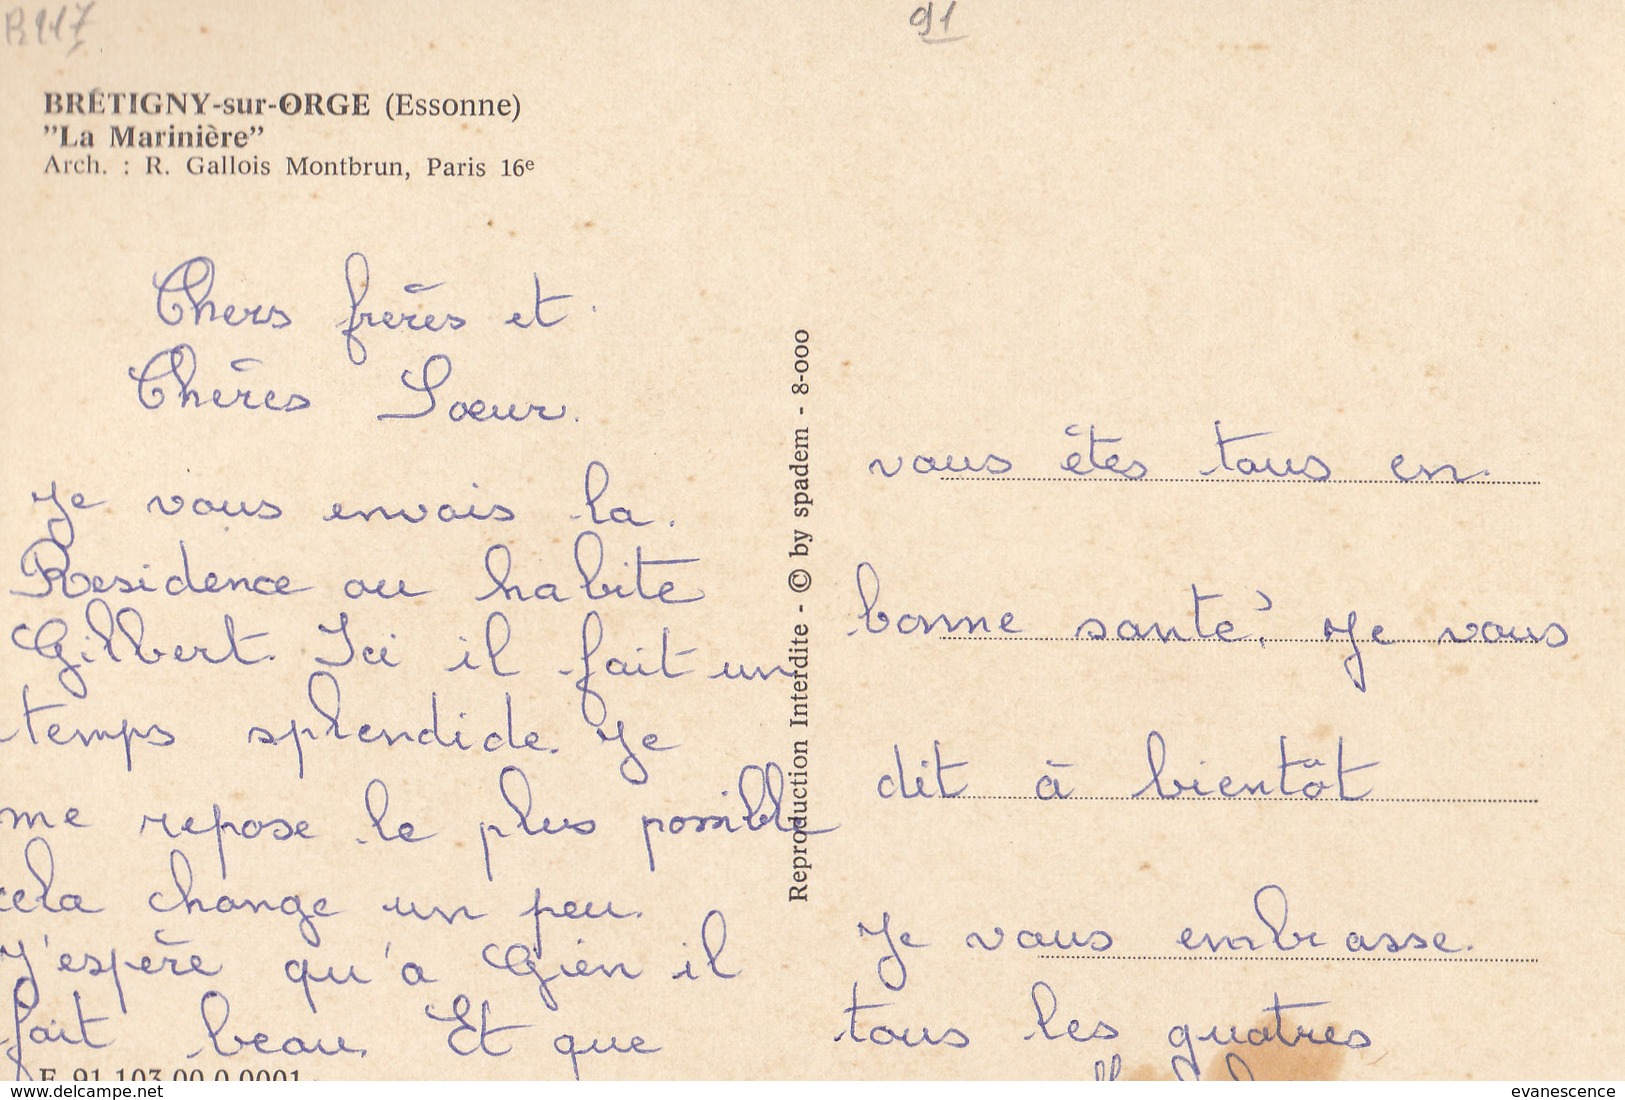 91
BRÉTIGNY-sur-ORGE (Essonne)
"La Marinière"
Arch. : R. Gallois Montbrun, Paris 16e
Chers frères et
Chères Soeur.
Je vous envois la.
Residence ou habite
Gilbert. Ici il fait un
temps splendide. Je
me repose le plus possible
cela change un peu.
J'espère qu'a Gien il
fait beau. Et que
E 91 103 00 0 0001
Reproduction Interdite - © by spadem - 8-000
vous êtes tous en.
bonne santé. Je vous
dit à bientôt
Je vous embrasse.
tous les quatres
www.delcampe.net
evanescence